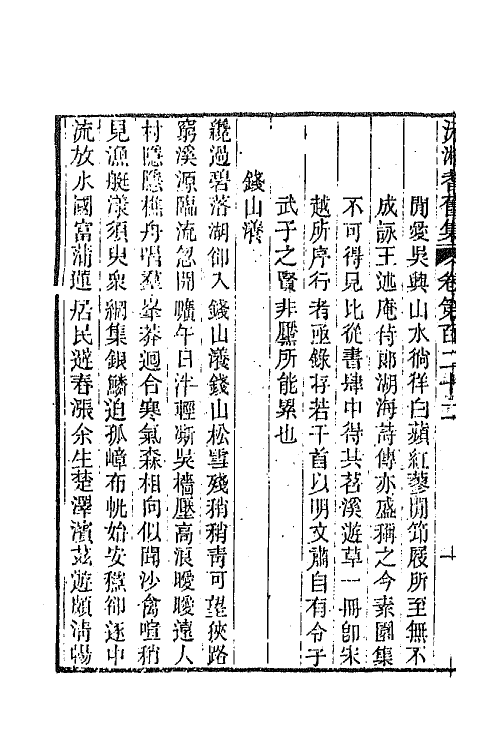 沅湘耆舊集　卷第百二十二　十
閒愛吳興山水徜徉白蘋紅蓼閒笻屐所至無不
成詠王述庵侍郎湖海詩傳亦盛稱之今素園集
不可得見比從書肆中得其苕溪遊草一冊卽朱
越所序行者亟錄存若干首以明文肅自有令子
武子之賢非驪所能累也
錢山漾
纔過碧落湖卻入錢山漾錢山松雪殘稍稍靑可望狹路
窮溪源臨流忽開曠午日泮輕澌吳檣壓高浪曖曖遠人
村隱隱樵舟唱羣峯莽迴合寒氣森相向似聞沙禽喧稍
見漁艇漾須臾衆網集銀鱗迫孤嶂布帆始安穩卻逐中
流放水國富蒲蓮居民遊春漲余生楚澤濱茲遊頗淸暢